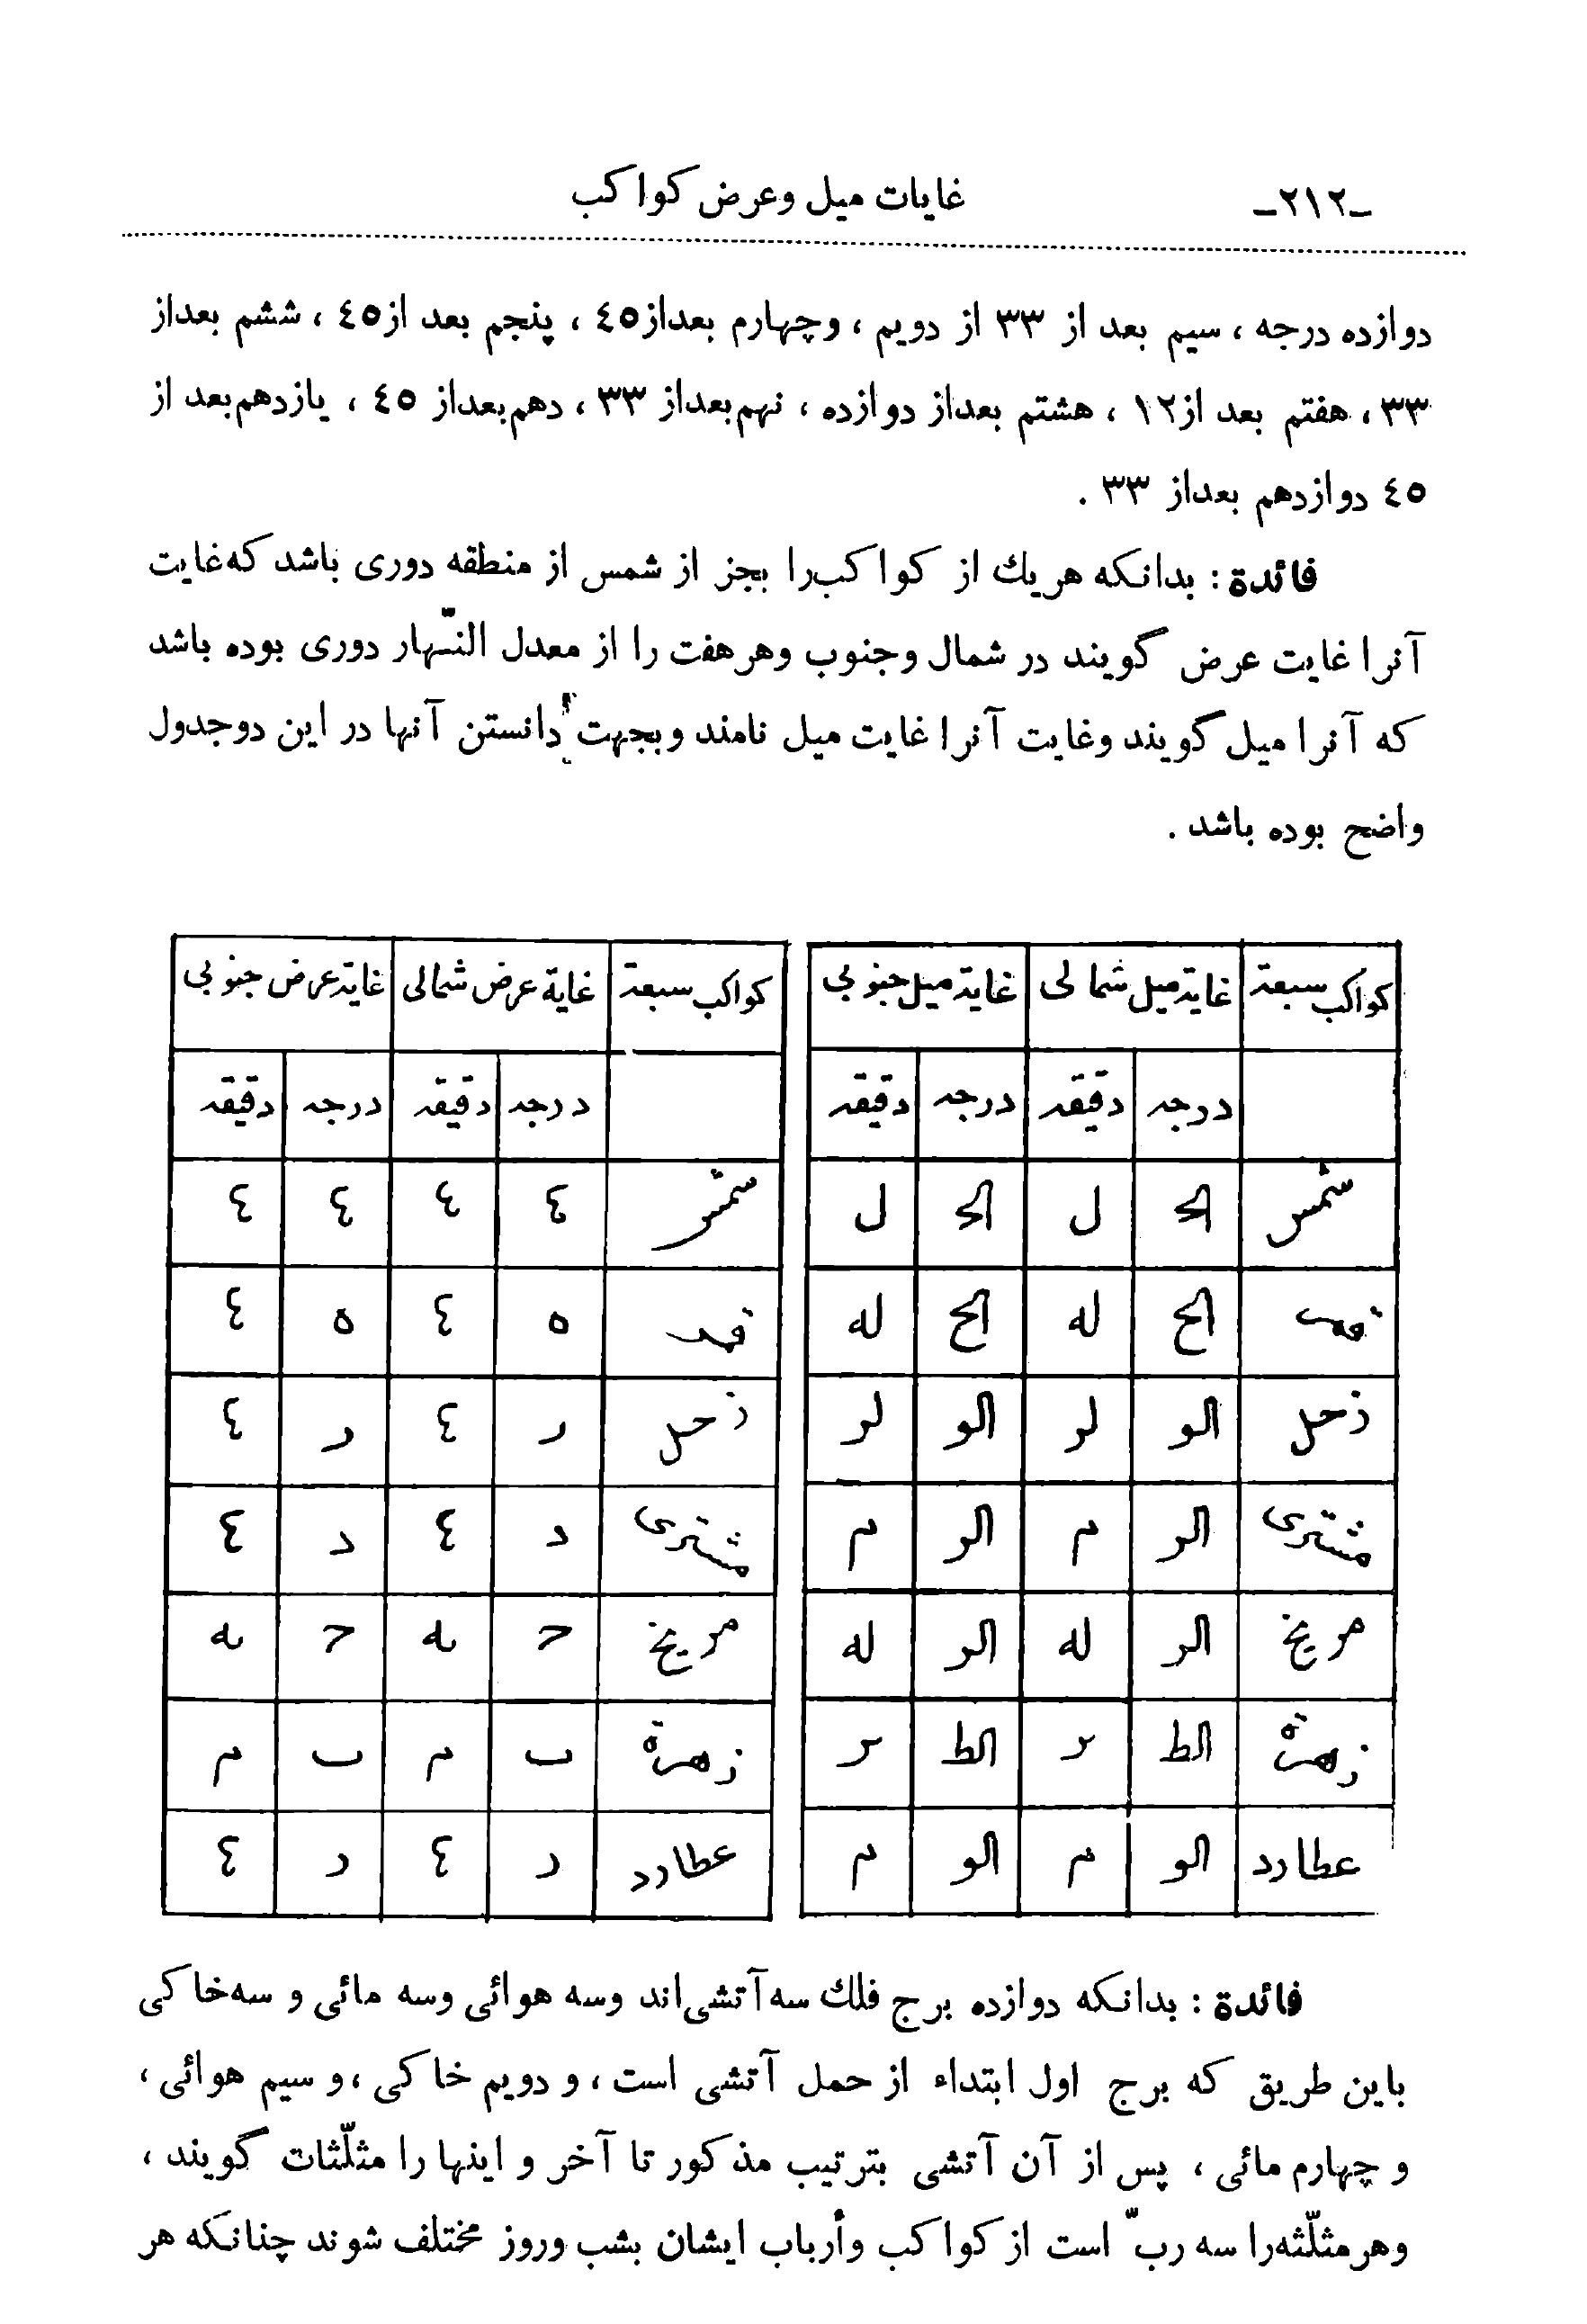 -٢١٢- غايات ميل وعرض كواكب
دوازده درجه ، سيم بعد از ٣٣ از دويم ، وچهارم بعداز٤٥ ، پنجم بعد از٤٥ ، ششم بعداز
٣٣ ، هفتم بعد از١٢ ، هشتم بعداز دوازده ، نهم بعداز ٣٣ ، دهم بعداز ٤٥ ، يازدهم بعد از
٤٥ دوازدهم بعداز ٣٣ .
فائدة : بدانكه هريك از كواكب را بجز از شمس از منطقه دورى باشد كه غايت
آنرا غايت عرض گويند در شمال وجنوب وهرهفت را از معدل النّهار دورى بوده باشد
كه آنرا ميل گويند وغايت آنرا غايت ميل نامند وبجهت دانستن آنها در اين دوجدول
واضح بوده باشد .
كواكب سبعة غاية ميل شمالى غاية ميل جنوبى
درجه دقيقه درجه دقيقه
شمس الح ل الح ل
قمر الح له الح له
زحل الو لر الو لر
مشترى الر م الر م
مريخ الر له الر له
زهرة الط ىر الط ىر
عطارد الو م الو م
كواكب سبعة غاية عرض شمالى غاية عرض جنوبى
درجه دقيقه درجه دقيقه
شمس ٤ ٤ ٤ ٤
قمر ه ٤ ه ٤
زحل ر ٤ ر ٤
مشترى د ٤ د ٤
مريخ ح ىه ح ىه
زهرة ب م ب م
عطارد ر ٤ ر ٤
فائدة : بدانكه دوازده برج فلك سه آتشى اند وسه هوائى وسه مائى و سه خاكى
باين طريق كه برج اول ابتداء از حمل آتشى است ، و دويم خاكى ، و سيم هوائى ،
و چهارم مائى ، پس از آن آتشى بترتيب مذكور تا آخر و اينها را مثلّثات گويند ،
وهرمثلّثه را سه ربّ است از كواكب وأرباب ايشان بشب وروز مختلف شوند چنانكه هر